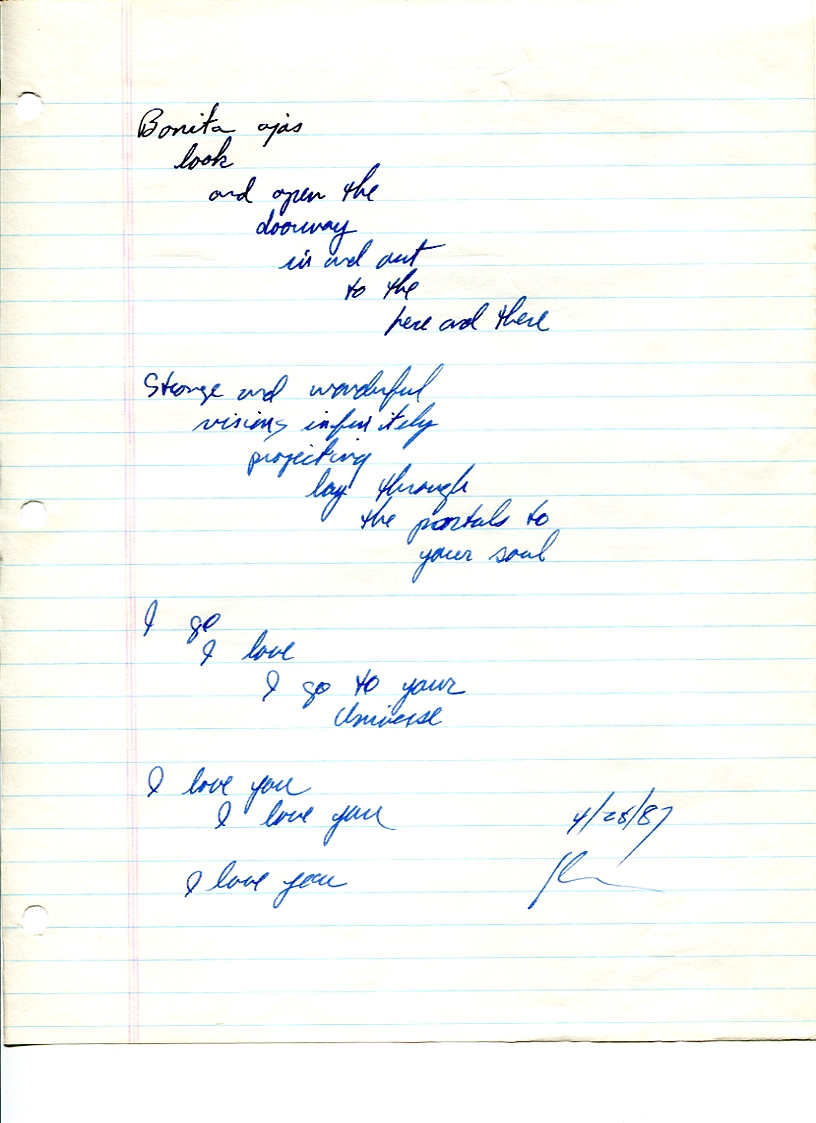 Bonita ojas
look
and open the
doorway
in and out
to the
here and there
Strange and wonderful
visions infinitely
projecting
lay through
the portals to
your soul
I go
I love
I go to your
Universe
I love you
I love you
4/28/87
I love you